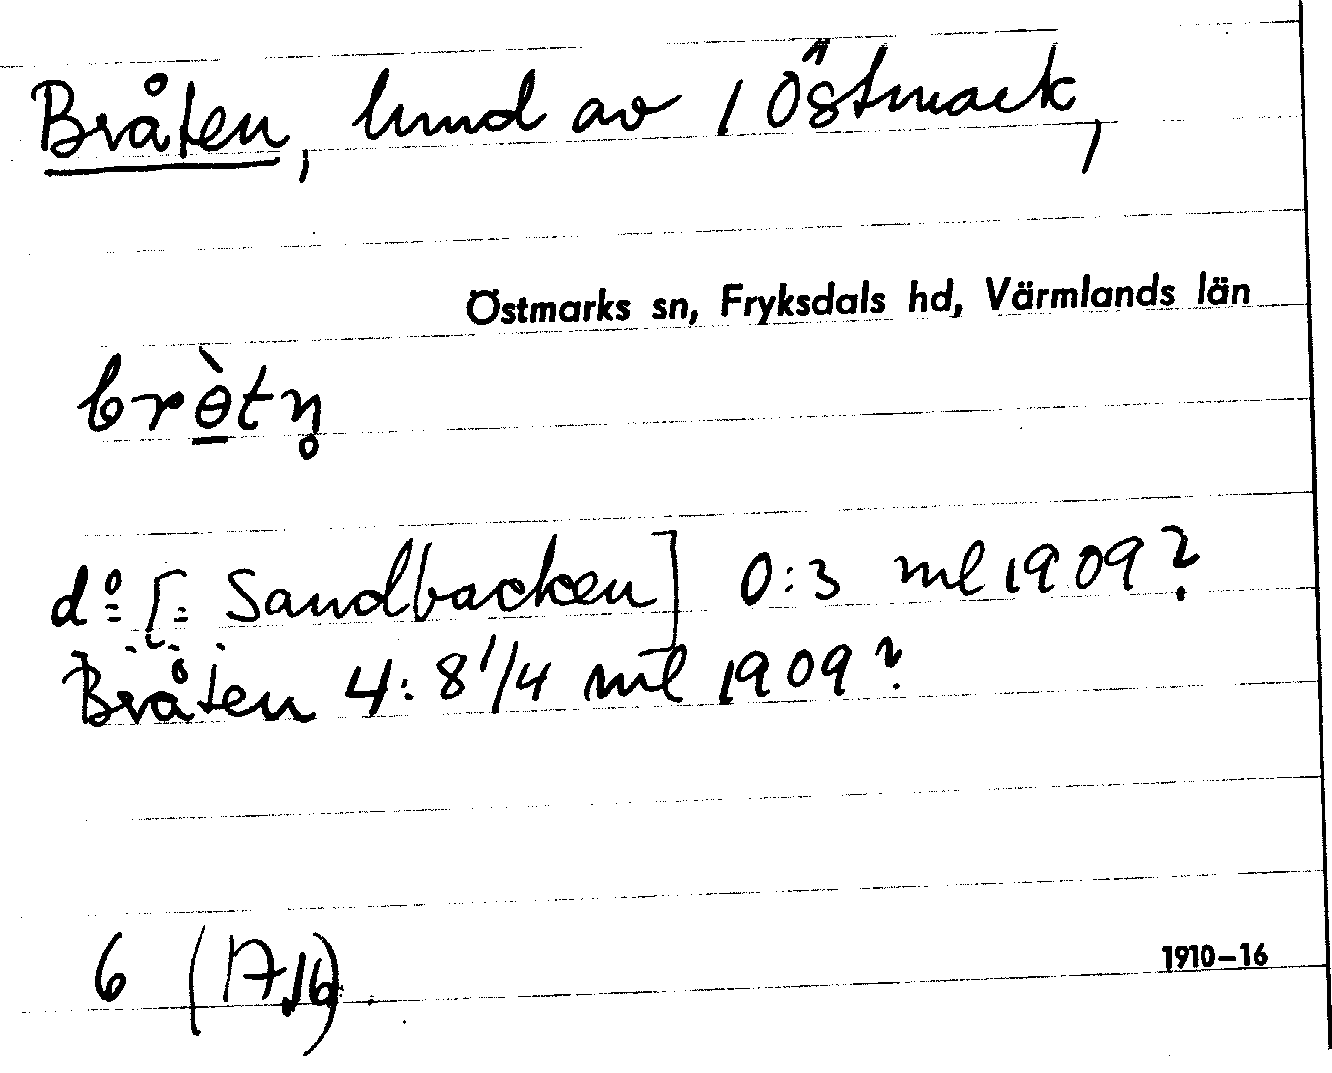 Bråten, lund av 1 Östmark,
Östmarks sn, Fryksdals hd, Värmlands län
brə̀tn̥
do [= Sandbacken] 0:3 ml 1909?
Bråten 4:8 1/4 ml 1909?
6 (17/16)
1910-16